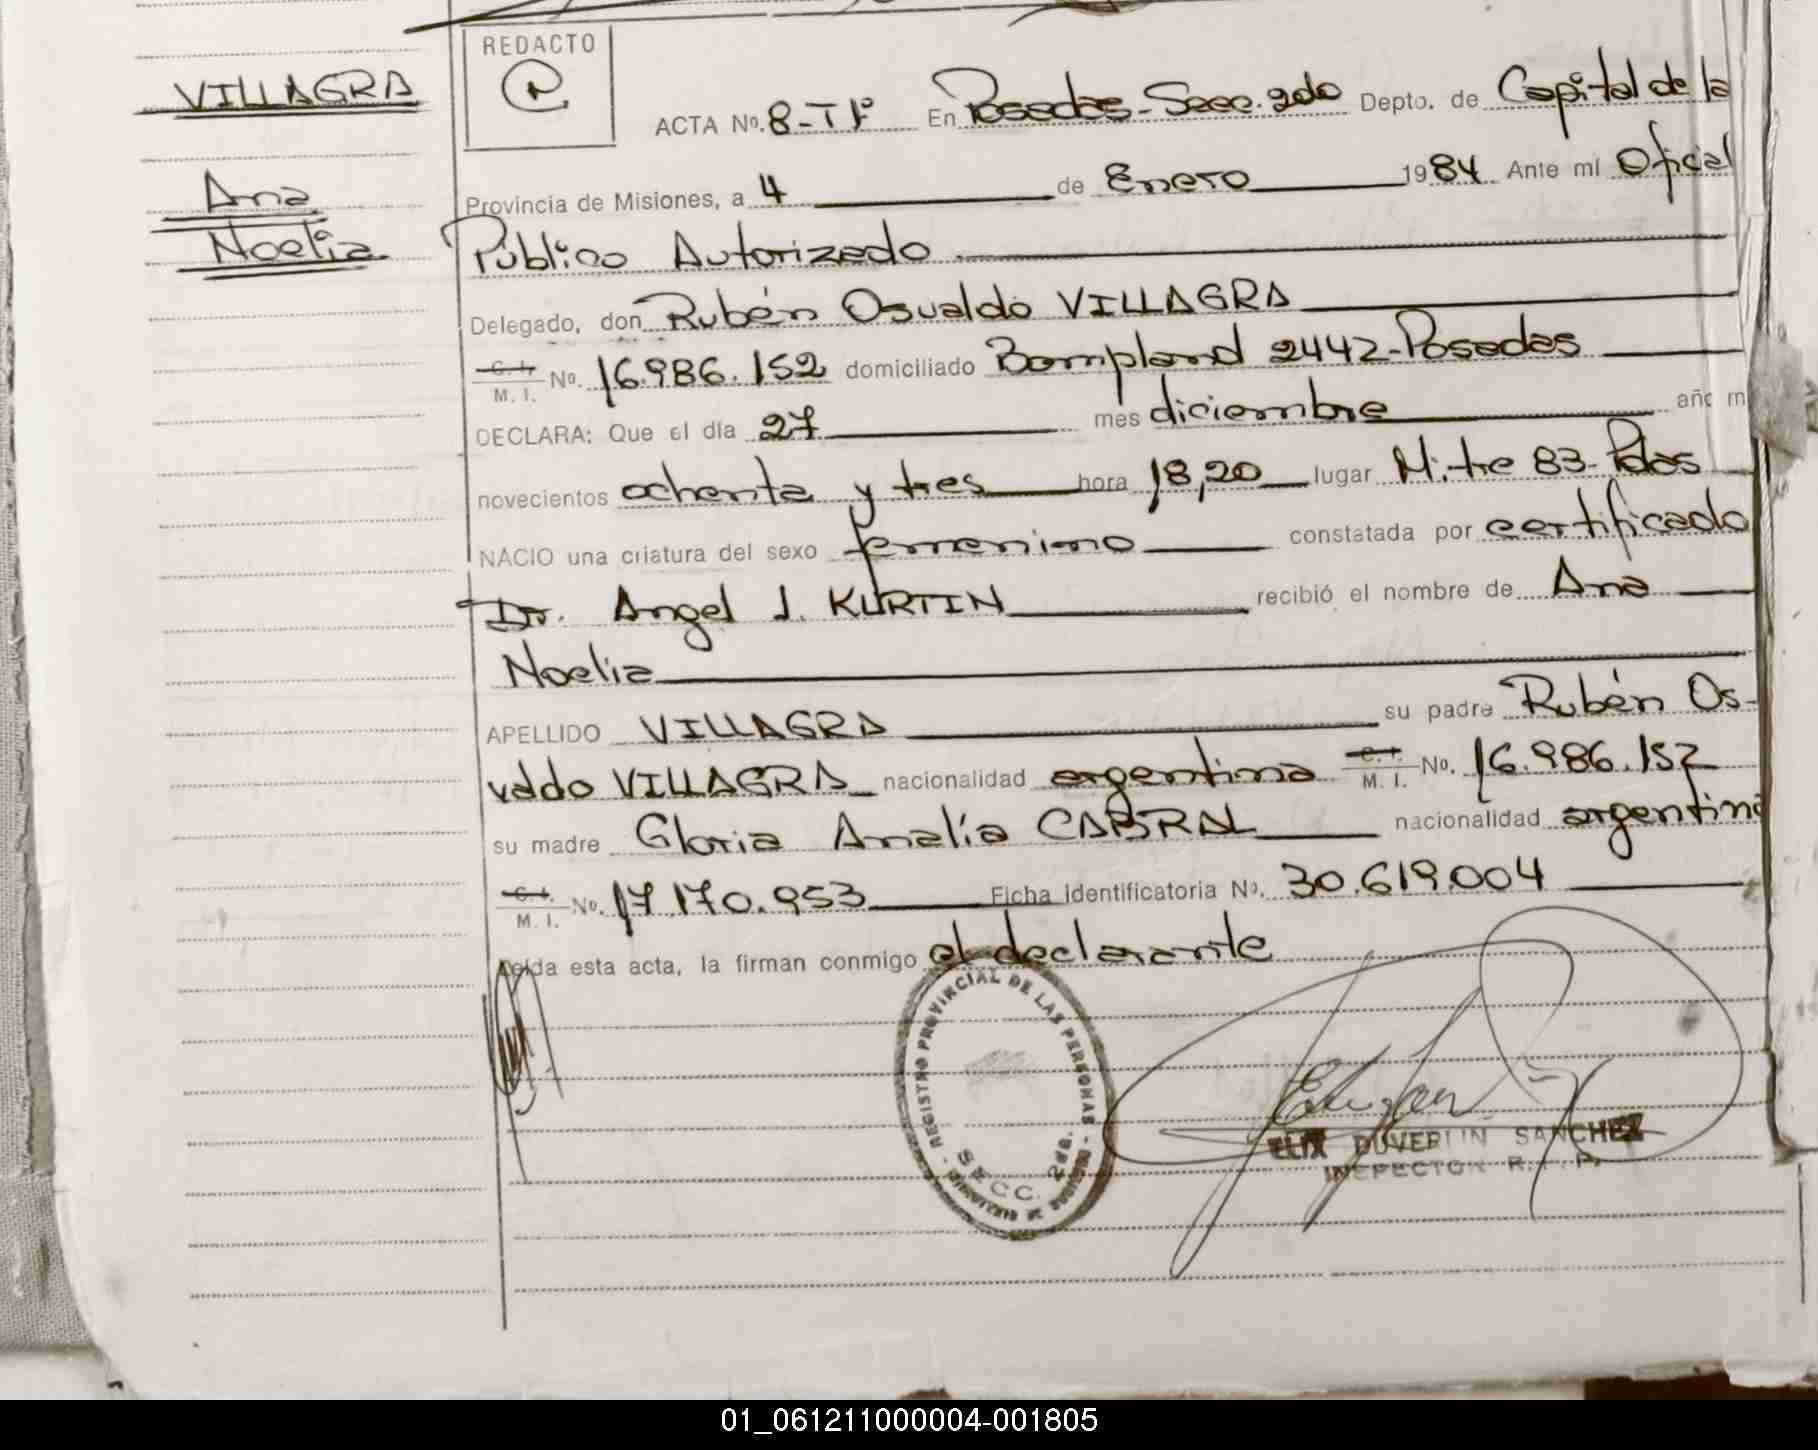 REDACTO
VILLAGRA
ACTA No. 8-Tº 1º En Posadas-Secc. 2da Depto. de Capital de la
Ana
Provincia de Misiones, a 4 de Enero 1984 Ante mí Oficial
Noelia
Público Autorizado
Delegado, don Rubén Osvaldo VILLAGRA
C. I. M. I. No. 16.986.152 domiciliado Bompland 2442-Posadas
DECLARA: Que el día 27 mes diciembre año m
novecientos ochenta y tres hora 18,20 lugar Mitre 83-Pdas
NACIO una criatura del sexo femenino constatada por certificado
Dr. Angel J. KURTIN recibió el nombre de Ana
Noelia
APELLIDO VILLAGRA su padre Rubén Os-
valdo VILLAGRA nacionalidad argentina C. I. M. I. No. 16.986.152
su madre Gloria Amalia CABRAL nacionalidad argentina
C. I. M. I. No. 17.170.953 Ficha Identificatoria No. 30.619.004
Leída esta acta, la firman conmigo el declarante
REGISTRO PROVINCIAL DE LAS PERSONAS
SECC. 2da.
SANCHEZ
INSPECTOR R. P. P.
01_061211000004-001805